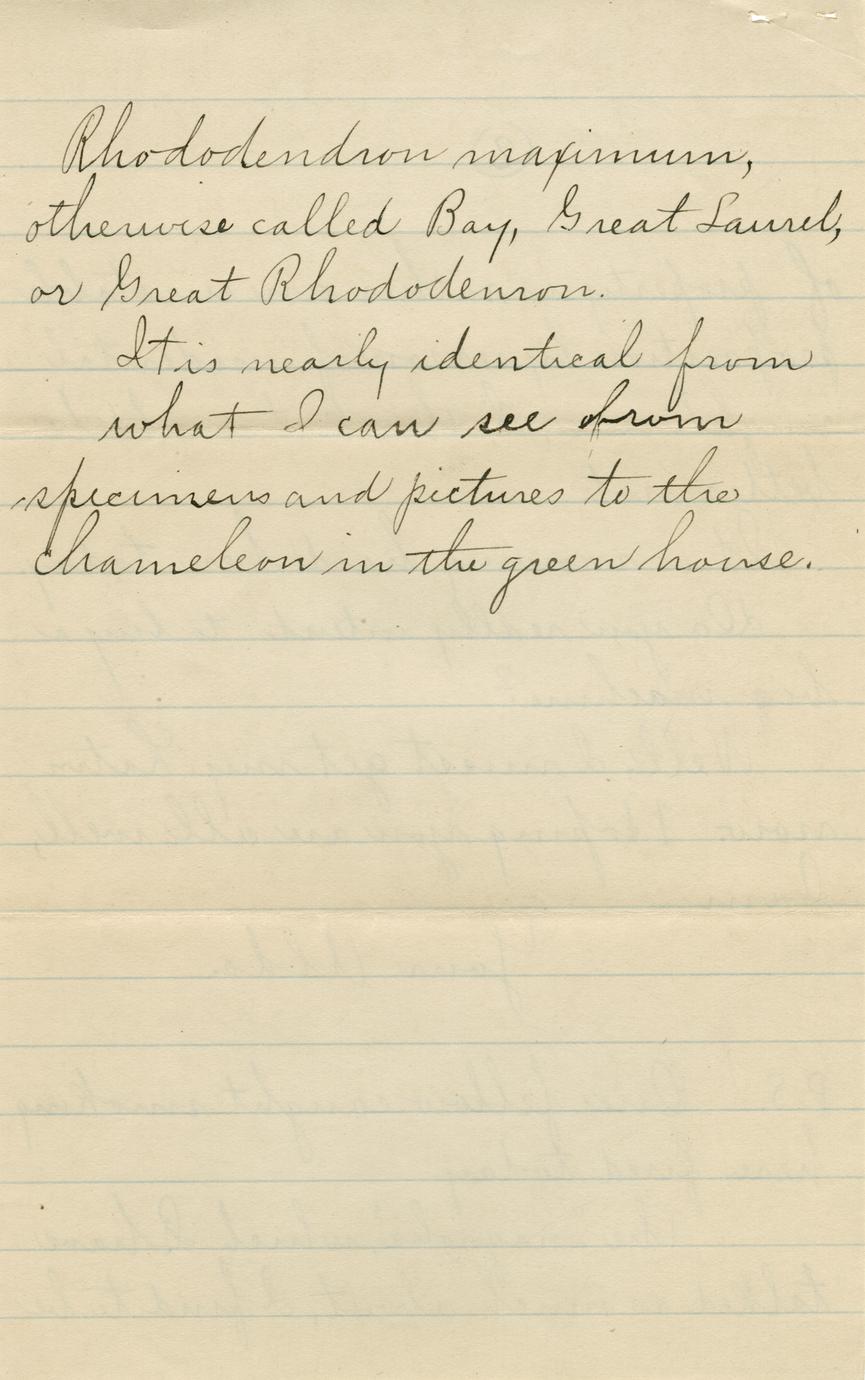 Rhododendron maximum,
otherwise called Bay, Great Laurel,
or Great Rhododenron.
It is nearly identical from
what I can see from
specimens and pictures to the
chameleon in the green house.